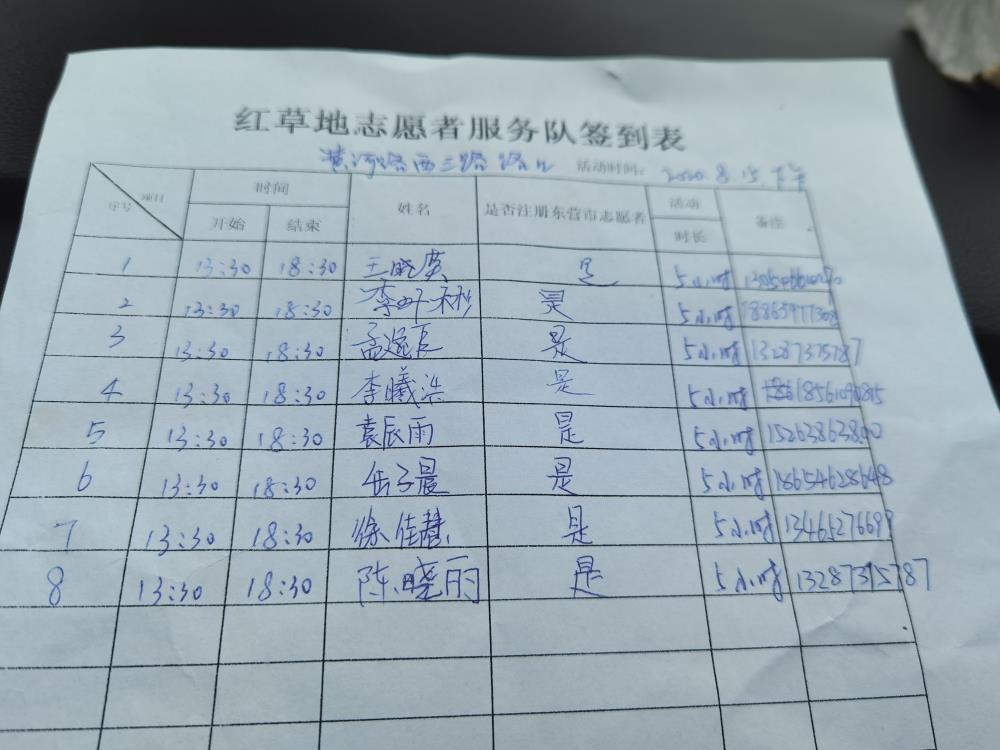 红草地志愿者服务队签到表
黄河路西三路路口 活动时间: 2020.8.15.下午
项目 时间 姓名 是否注册东营市志愿者 活动 备注
序号 开始 结束 时长
1 13:30 18:30 王晓英 是 5小时
2 13:30 18:30 是 5小时 18865977308
3 13:30 18:30 孟遂辰 是 5小时 13287375787
4 13:30 18:30 李曦浩 是 5小时
5 13:30 18:30 袁辰雨 是 5小时 15263863800
6 13:30 18:30 岳子晨 是 5小时 18654628648
7 13:30 18:30 徐佳慧 是 5小时 13465276699
8 13:30 18:30 陈晓丽 是 5小时 13287375787